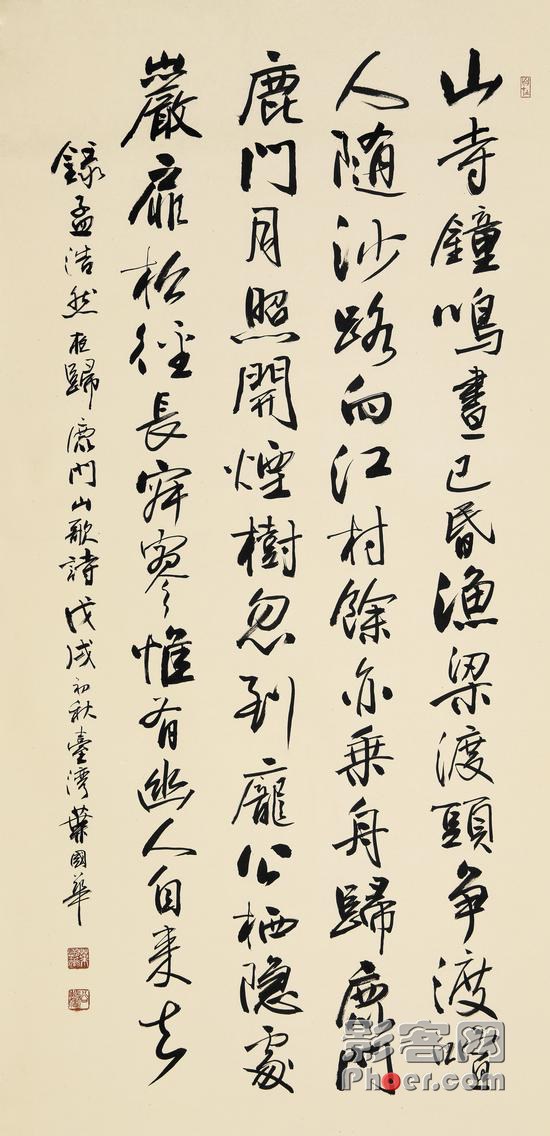 山寺鐘鳴晝已昏漁梁渡頭争渡喧
人随沙路向江村餘亦乘舟歸鹿門
鹿門月照開煙樹忽到龐公栖隐處
巖扉松徑長寂寥惟有幽人自来去
録孟浩然夜歸鹿門山歌詩戊戌初秋臺灣葉國華
影客网
Phoer.com